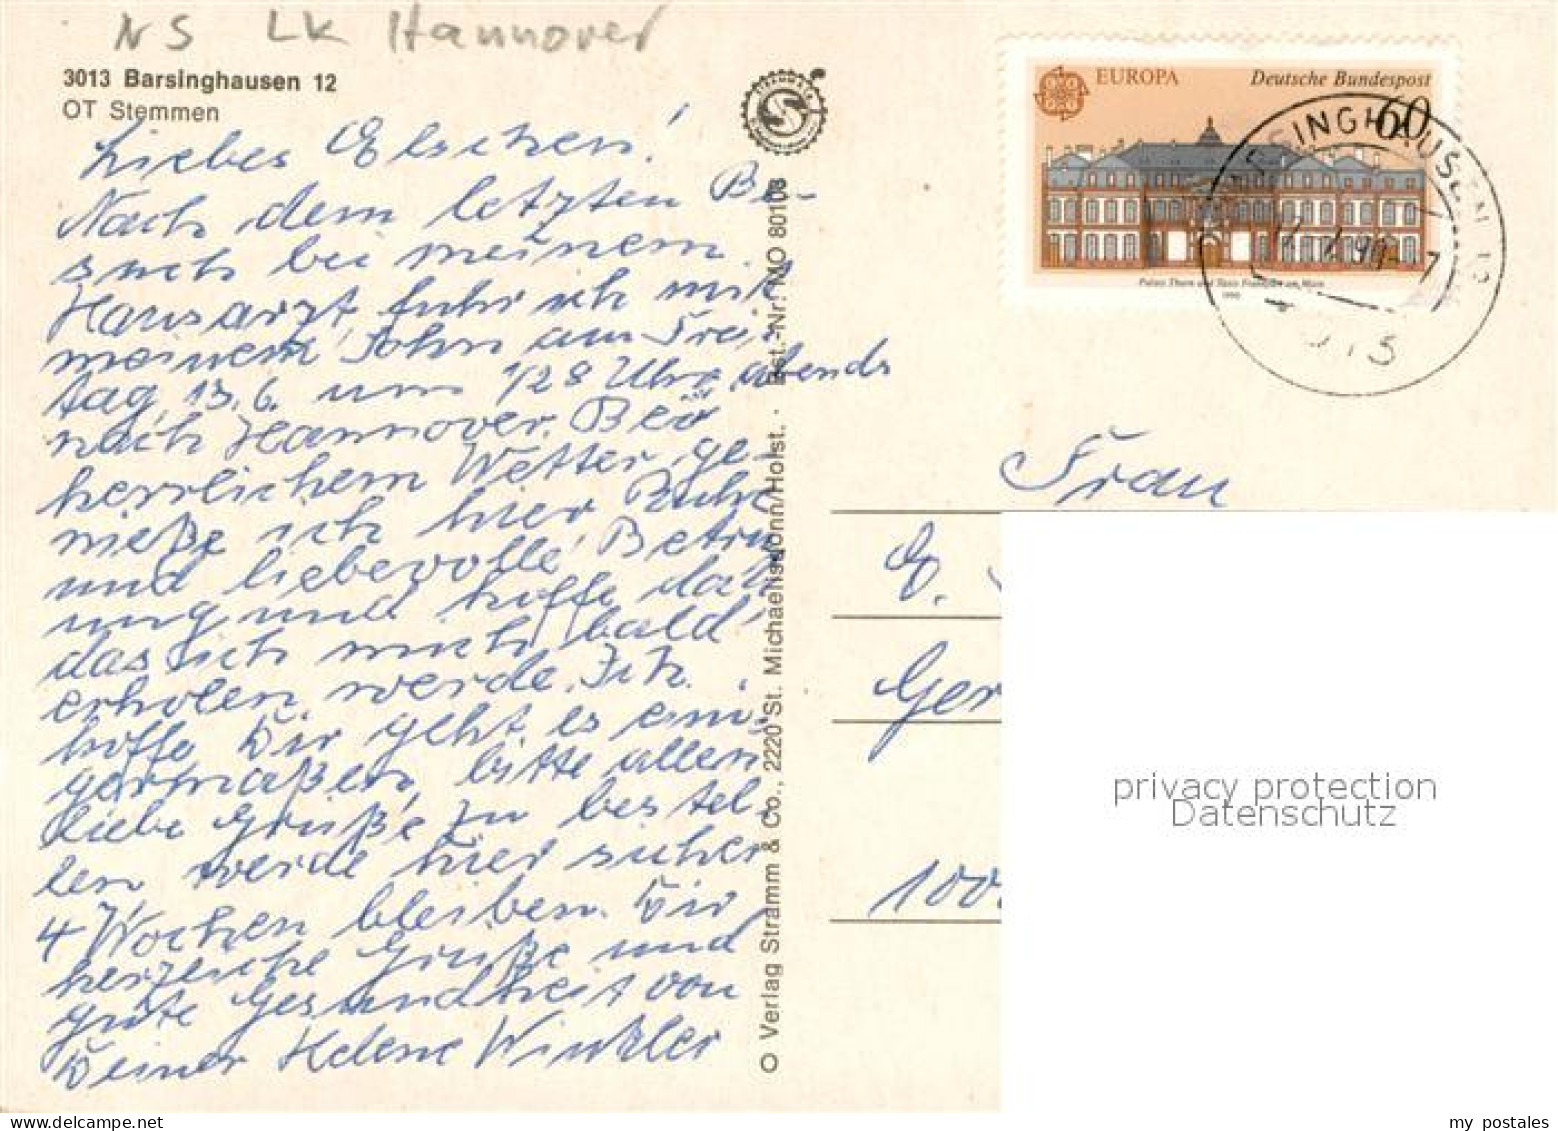 NS LK Hannover
3013 Barsinghausen 12
OT Stemmen
Liebes Elschen!
Nach dem letzten Be-
such bei meinem
Hausarzt fuhr ich mit
meinem Sohn am Frei-
tag, 13.6. um 1/2 8 Uhr abends
nach Hannover. Bei
herrlichem Wetter, ge-
nieße ich hier Ruhe
und liebevolle Betreu
ung und hoffe daß
das ich mich bald
erholen werde. Ich
hoffe Dir geht es eini-
germaßen, bitte allen
liebe Grüße zu bestel-
len werde hier sicher
4 Wochen bleiben. Dir
herzliche Grüße und
gute Gesundheit von
Deiner Helene Winkler
O Verlag Stramm & Co., 2220 St. Michaelisdonn/Holst. · Best.-Nr. MO 80108
EUROPA Deutsche Bundespost
60
Palais Thurn und Taxis Frankfurt am Main
1990
3013
Frau
E.
Ger
100
privacy protection
Datenschutz
my postales